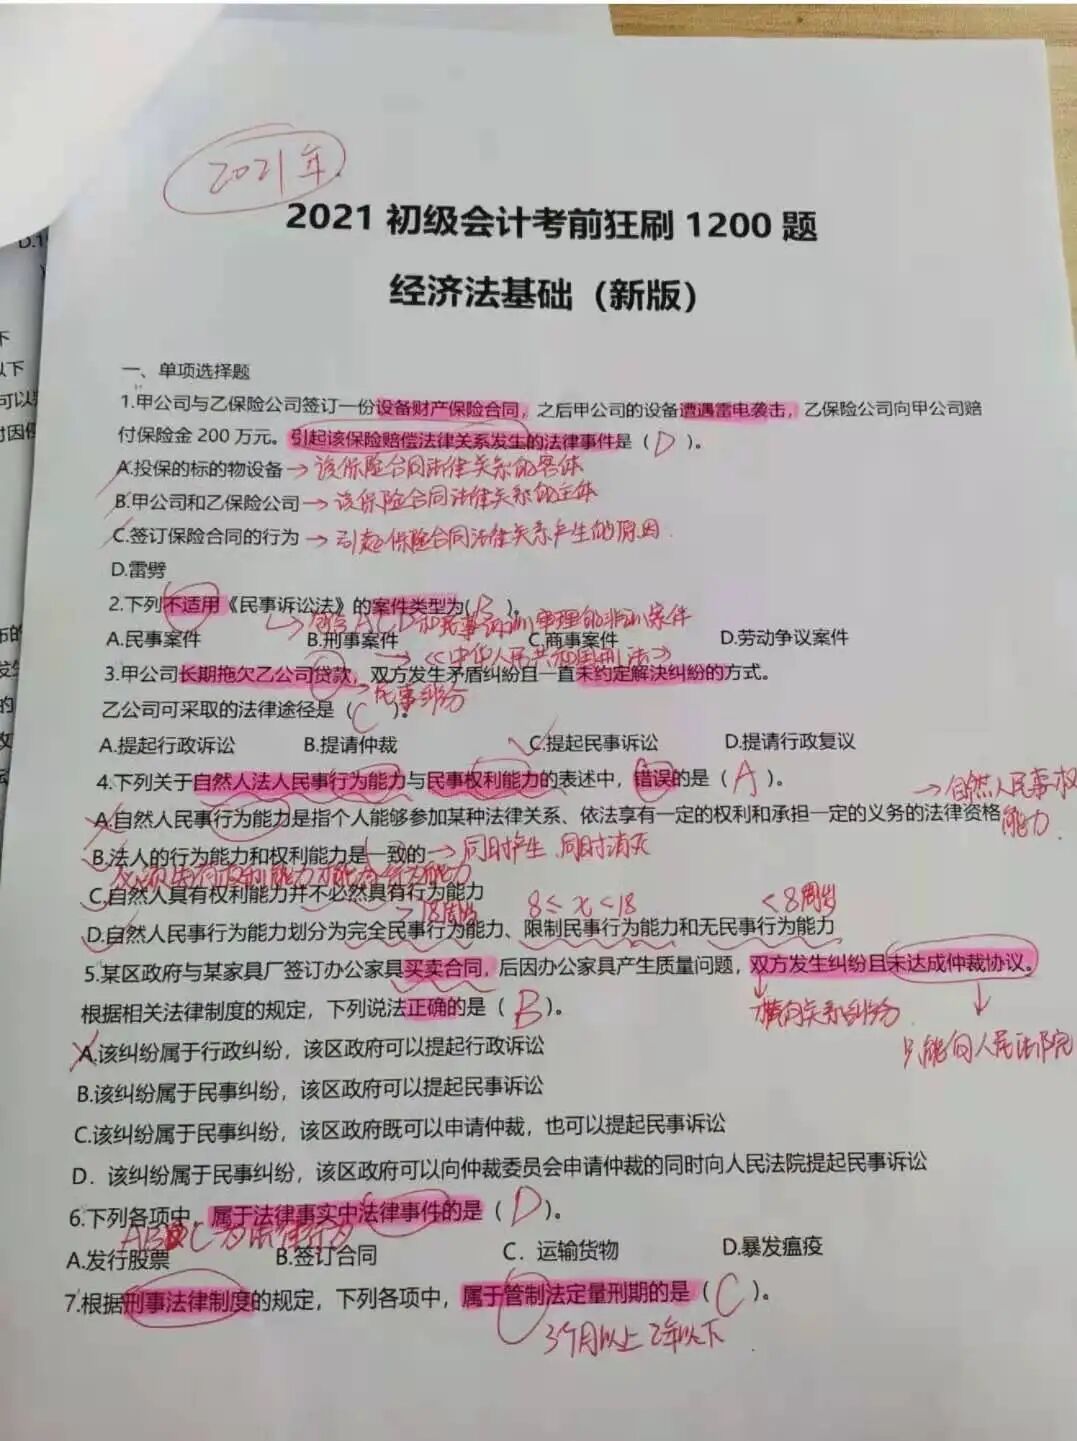 2021年
2021 初级会计考前狂刷 1200 题
经济法基础（新版）
一、单项选择题
1.甲公司与乙保险公司签订一份设备财产保险合同，之后甲公司的设备遭遇雷电袭击，乙保险公司向甲公司赔
付保险金 200 万元。引起该保险赔偿法律关系发生的法律事件是（ D ）。
A.投保的标的物设备 → 该保险合同法律关系的客体
B.甲公司和乙保险公司 → 该保险合同法律关系的主体
C.签订保险合同的行为 → 引起保险合同法律关系产生的原因
D.雷劈
2.下列不适用《民事诉讼法》的案件类型为( B )。
A.民事案件 B.刑事案件 C.商事案件 D.劳动争议案件
→《中华人民共和国刑法》
3.甲公司长期拖欠乙公司贷款，双方发生矛盾纠纷且一直未约定解决纠纷的方式。
→民事纠纷
乙公司可采取的法律途径是（ C ）。
A.提起行政诉讼 B.提请仲裁 C.提起民事诉讼 D.提请行政复议
4.下列关于自然人法人民事行为能力与民事权利能力的表述中，错误的是（ A ）。
→自然人民事权
A.自然人民事行为能力是指个人能够参加某种法律关系、依法享有一定的权利和承担一定的义务的法律资格
能力
B.法人的行为能力和权利能力是一致的 → 同时产生 同时消灭
C.自然人具有权利能力并不必然具有行为能力
>18周岁 8≤x<18 <8周岁
D.自然人民事行为能力划分为完全民事行为能力、限制民事行为能力和无民事行为能力
5.某区政府与某家具厂签订办公家具买卖合同，后因办公家具产生质量问题，双方发生纠纷且未达成仲裁协议。
根据相关法律制度的规定，下列说法正确的是（ B ）。
横向关系纠纷
只能向人民法院
A.该纠纷属于行政纠纷，该区政府可以提起行政诉讼
B.该纠纷属于民事纠纷，该区政府可以提起民事诉讼
C.该纠纷属于民事纠纷，该区政府既可以申请仲裁，也可以提起民事诉讼
D．该纠纷属于民事纠纷，该区政府可以向仲裁委员会申请仲裁的同时向人民法院提起民事诉讼
6.下列各项中，属于法律事实中法律事件的是（ D ）。
A.发行股票 B.签订合同 C．运输货物 D.暴发瘟疫
7.根据刑事法律制度的规定，下列各项中，属于管制法定量刑期的是（ C ）。
3个月以上 2年以下